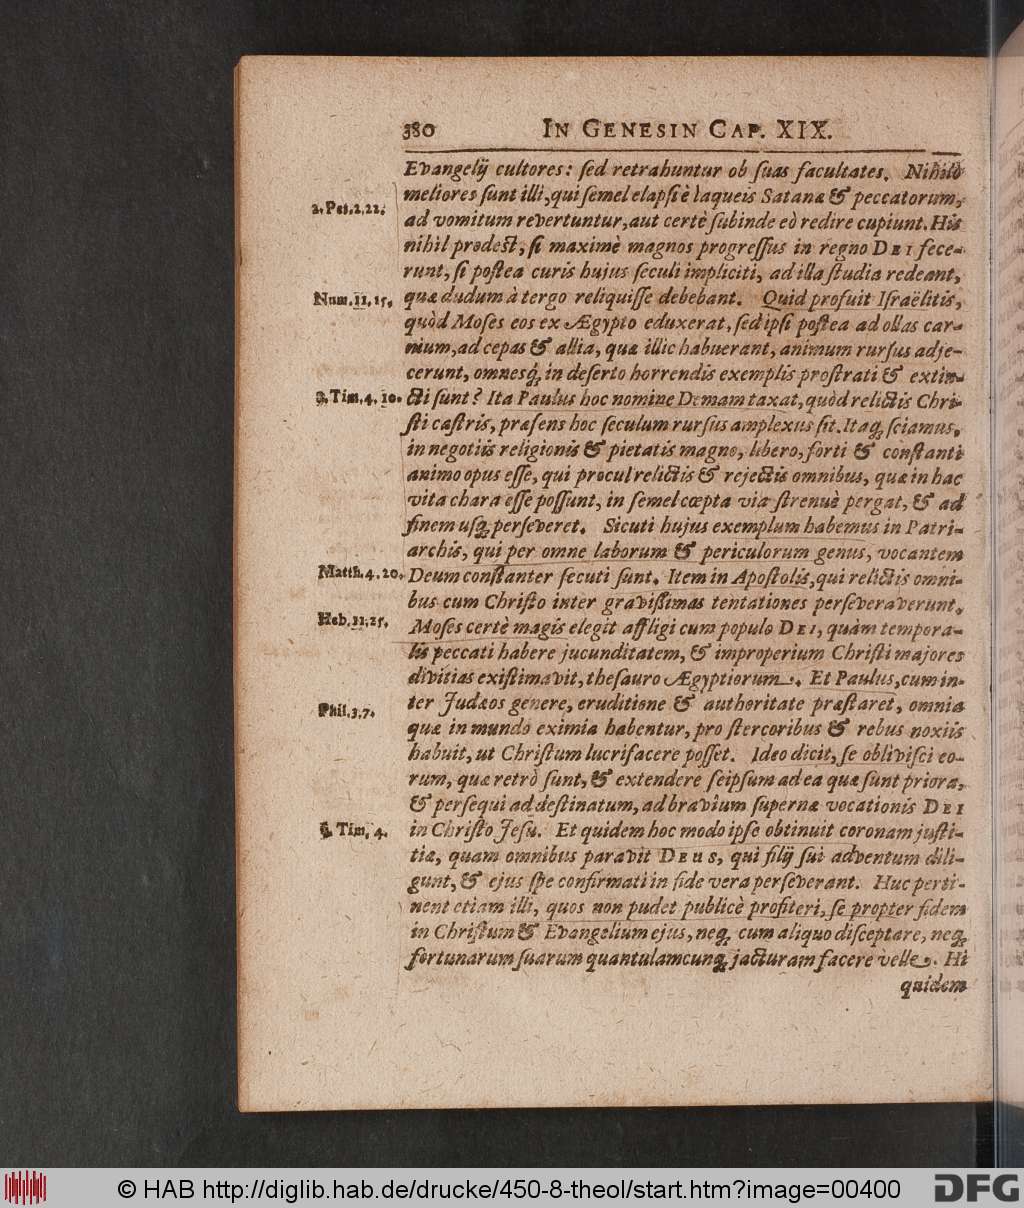 380 IN GENESIN CAP. XIX.
Evangelij cultores: sed retrahuntur ob suas facultates. Nihilo
meliores sunt illi, qui semel elapsi è laqueis Satanæ & peccatorum,
2. Pet. 2, 22.
ad vomitum revertuntur, aut certè subinde eò redire cupiunt. His
nihil prodest, si maximè magnos progressus in regno DEI fece-
runt, si postea curis hujus seculi impliciti, ad illa studia redeant,
Num. 11, 15.
quæ dudum à tergo reliquisse debebant. Quid profuit Israëlitis,
quòd Moses eos ex Ægypto eduxerat, sed ipsi postea ad ollas car-
nium, ad cepas & allia, quæ illic habuerant, animum rursus adje-
cerunt, omnesq; in deserto horrendis exemplis prostrati & extin-
Tim. 4. 10.
cti sunt? Ita Paulus hoc nomine Demam taxat, quòd relictis Chri-
sti castris, præsens hoc seculum rursus amplexus sit. Itaq; sciamus,
in negotiis religionis & pietatis magno, libero, forti & constanti
animo opus esse, qui procul relictis & rejectis omnibus, quæ in hac
vita chara esse possunt, in semel cœpta via strenuè pergat, & ad
finem usq; perseveret. Sicuti hujus exemplum habemus in Patri-
archis, qui per omne laborum & periculorum genus, vocantem
Matth. 4. 20.
Deum constanter secuti sunt. Item in Apostolis, qui relictis omni-
bus cum Christo inter gravissimas tentationes perseveraverunt.
Heb. 11, 25.
Moses certè magis elegit affligi cum populo DEI, quàm tempora-
lis peccati habere jucunditatem, & improperium Christi majores
divitias existimavit, thesauro Ægyptiorum. Et Paulus, cum in-
ter Judæos genere, eruditione & authoritate præstaret, omnia
Phil. 3, 7.
quæ in mundo eximia habentur, pro stercoribus & rebus noxiis
habuit, ut Christum lucrifacere posset. Ideo dicit, se oblivisci eo-
rum, quæ retrò sunt, & extendere seipsum ad ea quæ sunt priora,
& persequi ad destinatum, ad bravium supernæ vocationis DEI
Tim. 4.
in Christo Jesu. Et quidem hoc modo ipse obtinuit coronam justi-
tiæ, quam omnibus paravit DEUS, qui filij sui adventum dili-
gunt, & ejus spe confirmati in fide vera perseverant. Huc perti-
nent etiam illi, quos non pudet publicè profiteri, se propter fidem
in Christum & Evangelium ejus, neq; cum aliquo disceptare, neq;
fortunarum suarum quantulamcunq; jacturam facere velle. Hi
quidem
© HAB http://diglib.hab.de/drucke/450-8-theol/start.htm?image=00400
DFG